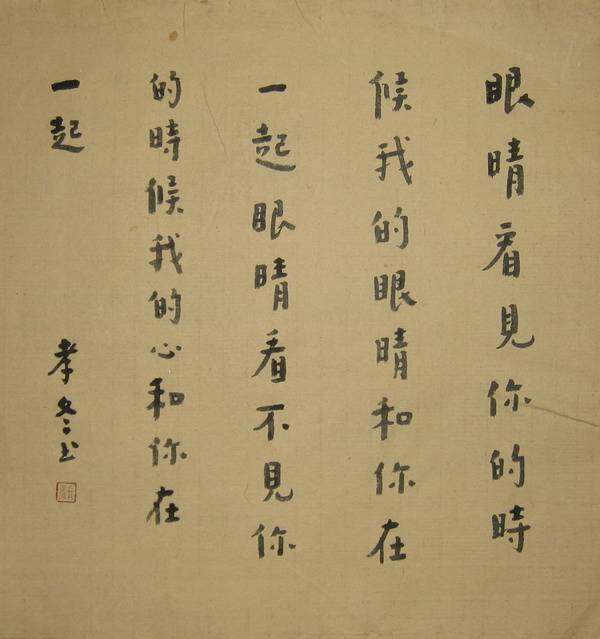 眼睛看見你的時
候我的眼睛和你在
一起眼睛看不見你
的時候我的心和你在
一起
孝冬书